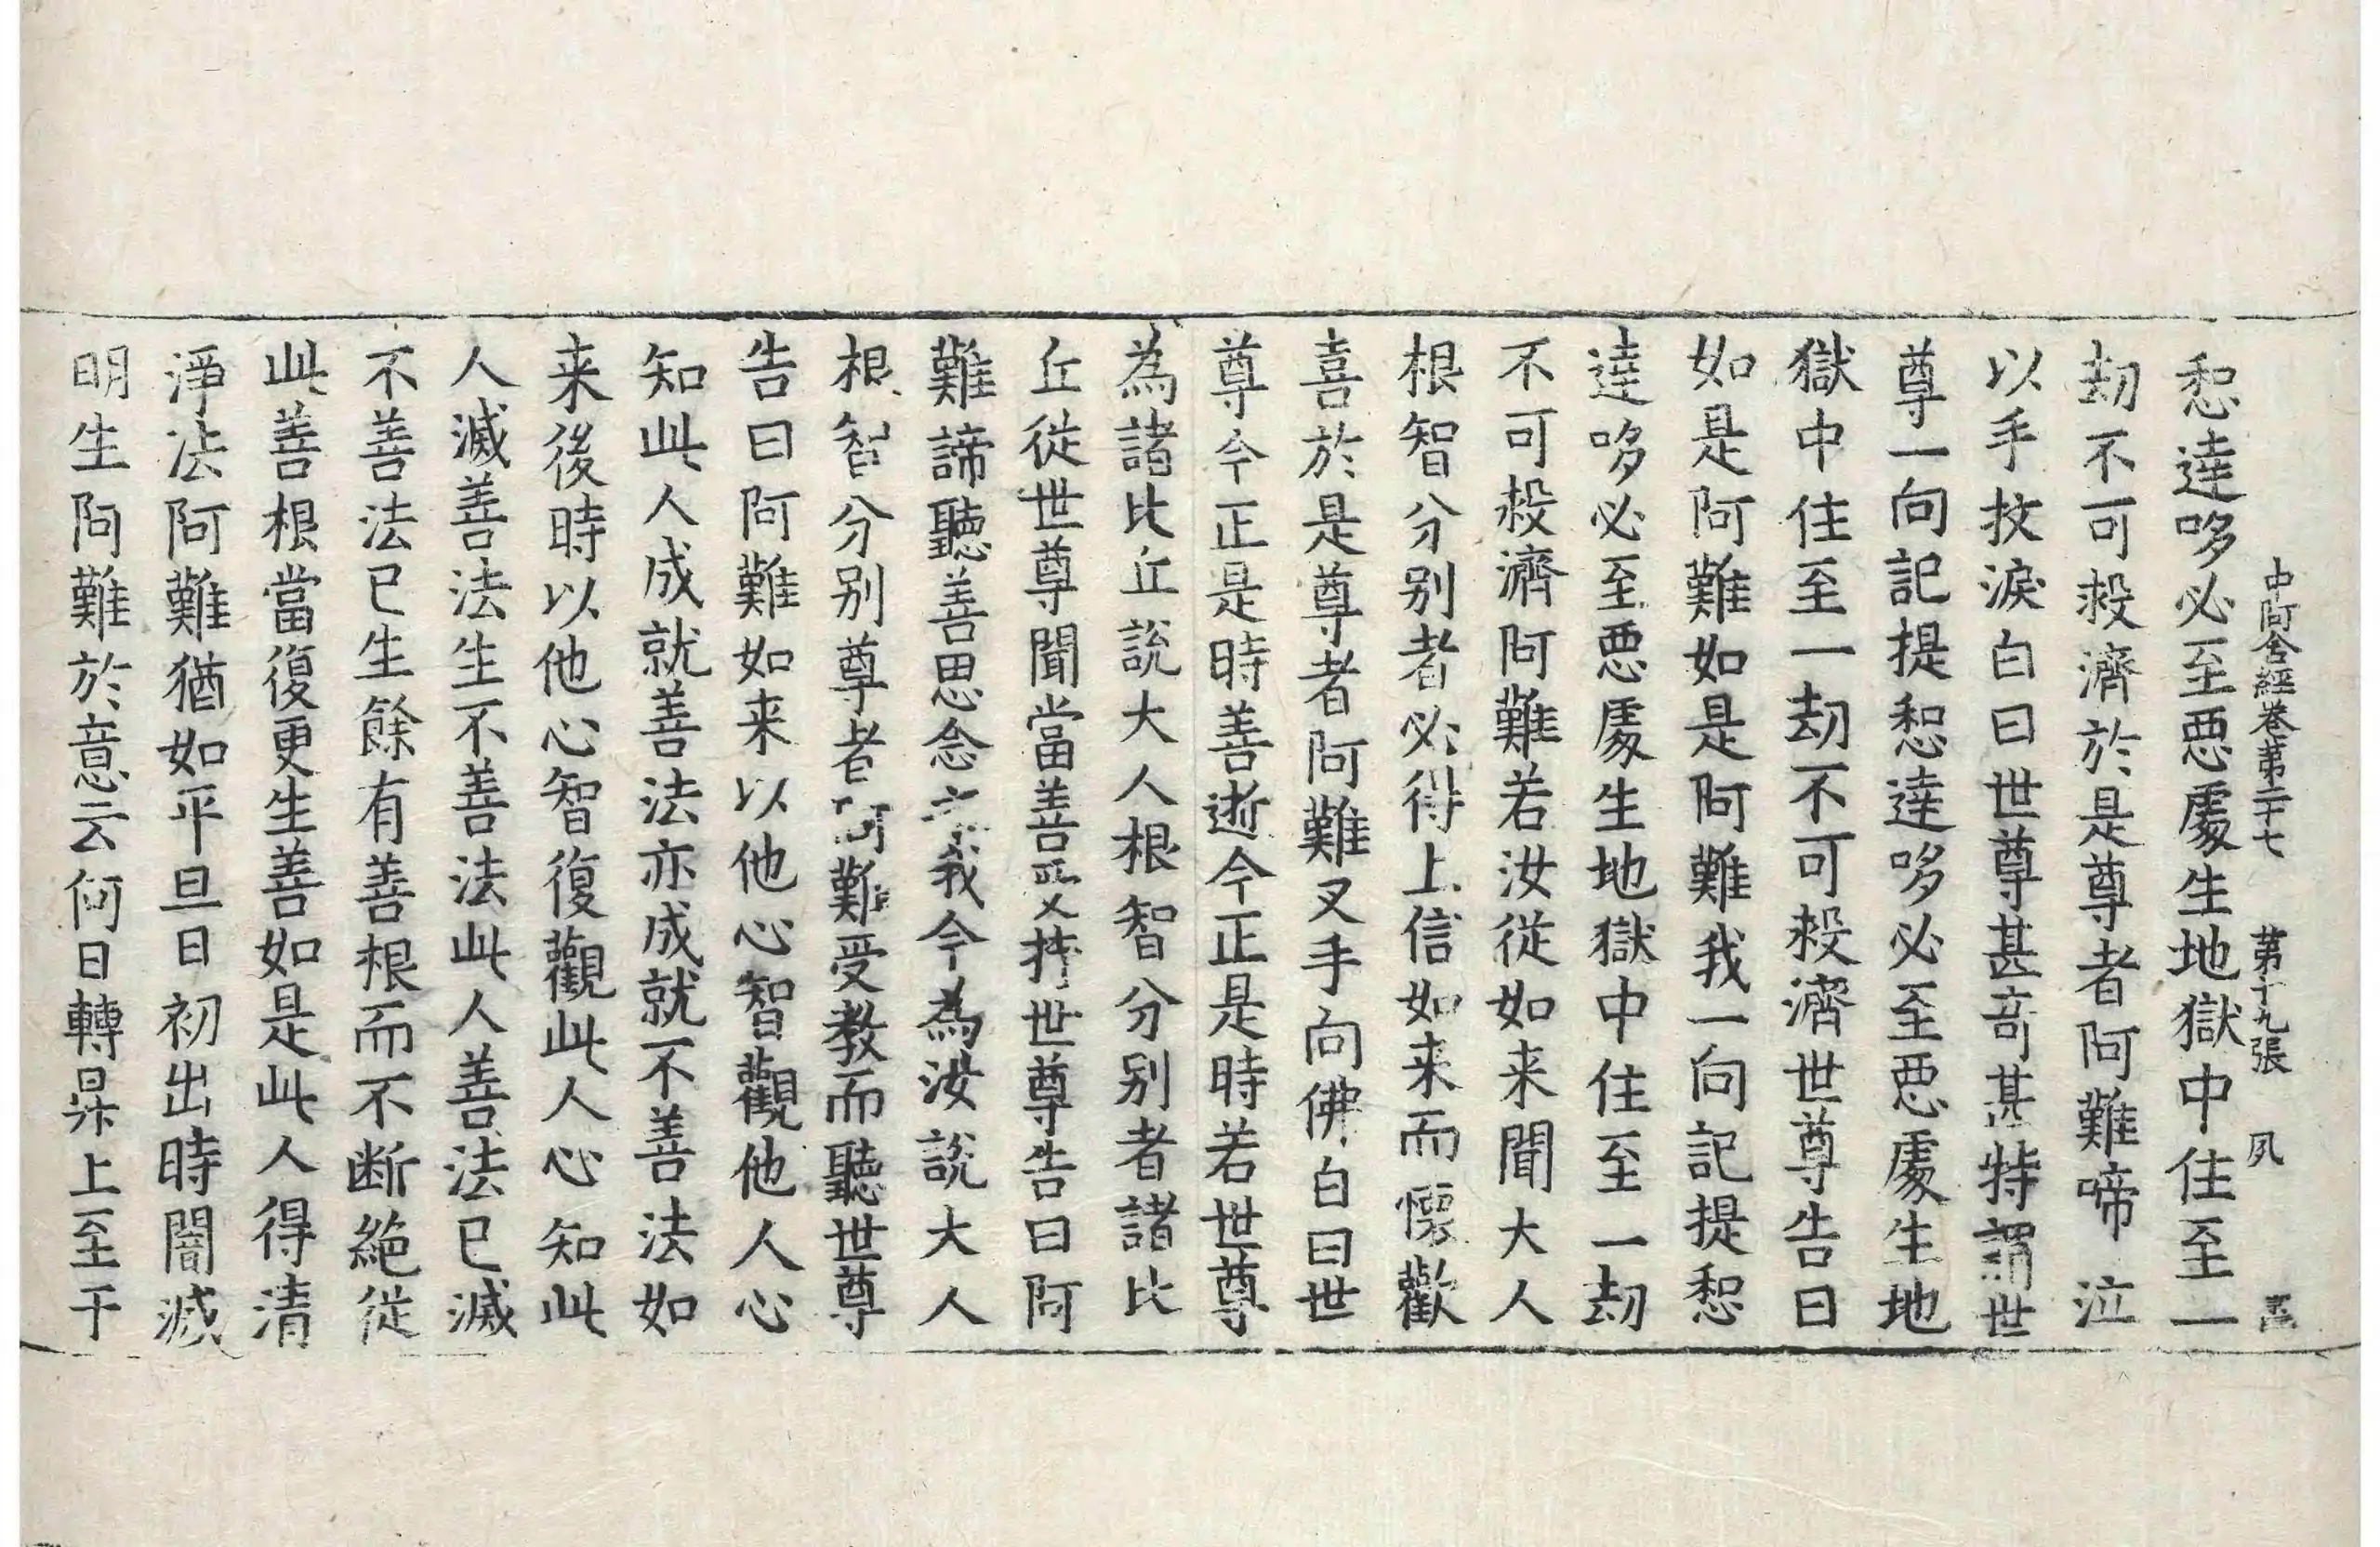 中阿含經卷第二十七 第十九張 夙
惒達哆必至惡處生地獄中住至一
劫不可救濟於是尊者阿難啼泣
以手抆淚白曰世尊甚奇甚特謂世
尊一向記提惒達哆必至惡處生地
獄中住至一劫不可救濟世尊告曰
如是阿難如是阿難我一向記提惒
達哆必至惡處生地獄中住至一劫
不可救濟阿難若汝從如来聞大人
根智分别者必得上信如来而懷歡
喜於是尊者阿難叉手向佛白曰世
尊今正是時善逝今正是時若世尊
為諸比丘說大人根智分别者諸比
丘從世尊聞當善受持世尊告曰阿
難諦聽善思念之我今為汝說大人
根智分别尊者阿難受教而聽世尊
告曰阿難如来以他心智觀他人心
知此人成就善法亦成就不善法如
来後時以他心智復觀此人心知此
人滅善法生不善法此人善法已滅
不善法已生餘有善根而不断絕從
此善根當復更生善如是此人得清
淨法阿難猶如平旦日初出時闇滅
明生阿難於意云何日轉昇上至于